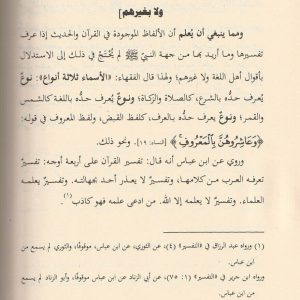 ولا بغيرهم]
ومما ينبغي أن يُعلم أن الألفاظ الموجودة في القرآن والحديث إذا عرف
تفسيرها وما أريد بها من جهة النبي ﷺ لم يُحْتَجْ في ذلك إلى الاستدلال
بأقوال أهل اللغة ولا غيرهم؛ ولهذا قال الفقهاء: «الأسماء ثلاثة أنواع»: نوعٌ
يُعرف حدُّه بالشرع، كالصلاة والزكاة؛ ونوعٌ يُعرف حدُّه باللغة كالشمس
والقمر؛ ونوعٌ يعرف حدُّه بالعرف، كلفظ القبض، ولفظ المعروف في قوله:
﴿وَعَاشِرُوهُنَّ بِالْمَعْرُوفِ﴾ [النساء: ١٩]. ونحو ذلك.
وروي عن ابن عباس أنه قال: تفسير القرآن على أربعة أوجه: تفسيرٌ
تعرفه العرب من كلامها، وتفسيرٌ لا يعذر أحد بجهالته. وتفسيرٌ يعلمه
العلماء. وتفسيرٌ لا يعلمه إلا الله. من ادعى علمه فهو كاذب(١).
(١) ورواه عبد الرزاق في «التفسير» (٤)، عن الثوري، عن ابن عباس، موقوفًا، والثوري لم يسمع من
ابن عباس.
ورواه ابن جرير في «التفسير» (١: ٧٥)، عن أبي الزناد عن ابن عباس، موقوفًا، وأبو الزناد لم يسمع
من ابن عباس.